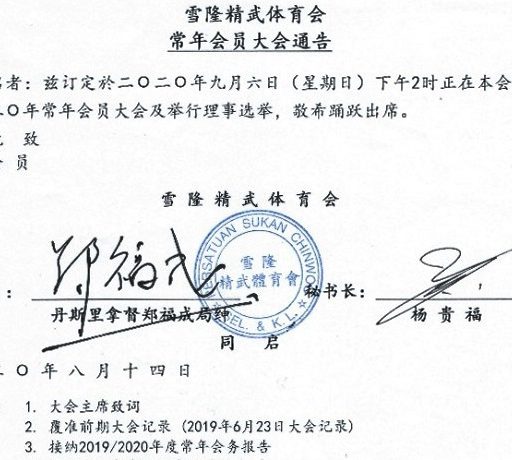 雪隆精武体育会
常年会员大会通告
者：兹订定於二〇二〇年九月六日（星期日）下午2时正在本会
〇年常年会员大会及举行理事选举，敬希踊跃出席。
致
员
雪隆精武体育会
PERSATUAN SUKAN CHINWOO
雪隆
精武體育會
SEL. & K.L.
郑福成
：
秘书长：
丹斯里拿督郑福成局绅
杨贵福
同启
〇年八月十四日
1. 大会主席致词
2. 覆准前期大会记录 (2019年6月23日大会记录)
3. 接纳2019/2020年度常年会务报告